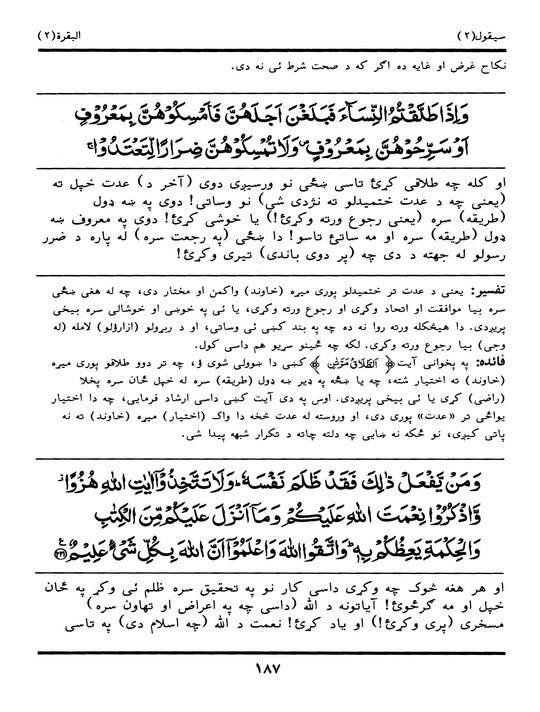 سيقول(٢) البقرة(٢)
نكاح غرض او غايه ده اگر كه د صحت شرط ئى نه دى.
وَاِذَا طَلَّقْتُمُ النِّسَآءَ فَبَلَغْنَ اَجَلَهُنَّ فَاَمْسِكُوْهُنَّ بِمَعْرُوْفٍ
اَوْ سَرِّحُوْهُنَّ بِمَعْرُوْفٍ ۪ وَلَا تُمْسِكُوْهُنَّ ضِرَارًا لِّتَعْتَدُوْا ۚ
او كله چه طلاقى كړئ تاسى ښځى نو ورسيږى دوى (آخر د) عدت خپل ته
(يعنى چه د عدت ختميدلو ته نژدى شى) نو وساتى! دوى په ښه ډول
(طريقه) سره (يعنى رجوع ورته وكړئ!) يا خوشى كړئ! دوى په معروف ښه
ډول (طريقه) سره او مه ساتئ تاسو! دا ښځى (په رجعت سره) له پاره د ضرر
رسولو له جهته د دى چه (پر دوى باندى) تيرى وكړئ!
تفسير: يعنى د عدت تر ختميدلو پورى ميړه (خاوند) واكمن او مختار دى، چه له هغى ښځى
سره بيا موافقت او اتحاد وكړى او رجوع ورته وكړى، يا ئى په خوښى او خوشالى سره بيخى
پريږدى. دا هيڅكله ورته روا نه ده چه په بند كښى ئى وساتى، او د ربړولو (ازارولو) لامله (له
وجى) بيا رجوع ورته وكړى. لكه چه ځينو سړيو هم داسى كول.
فائده: په پخوانى آيت ﴿ اَلطَّلَاقُ مَرَّتٰنِ ﴾ كښى دا ښوولى شوى ؤ، چه تر دوو طلاقو پورى ميړه
(خاوند) ته اختيار شته، چه يا ښځه په ډير ښه ډول (طريقه) سره له خپل ځان سره پخلا
(راضى) كړى يا ئى بيخى پريږدى. اوس په دى آيت كښى داسى ارشاد فرمايى، چه دا اختيار
يواځى تر «عدت» پورى دى، او وروسته له عدت څخه دا واك (اختيار) ميړه (خاوند) ته نه
پاتى كيږى، نو ځكه نه ښايى چه دلته چاته د تكرار شبهه پيدا شى.
وَمَنْ يَّفْعَلْ ذٰلِكَ فَقَدْ ظَلَمَ نَفْسَهٗ ؕ وَلَا تَتَّخِذُوْٓا اٰيٰتِ اللّٰهِ هُزُوًا ۫
وَّاذْكُرُوْا نِعْمَتَ اللّٰهِ عَلَيْكُمْ وَمَآ اَنْزَلَ عَلَيْكُمْ مِّنَ الْكِتٰبِ
وَالْحِكْمَةِ يَعِظُكُمْ بِهٖ ؕ وَاتَّقُوا اللّٰهَ وَاعْلَمُوْٓا اَنَّ اللّٰهَ بِكُلِّ شَىْءٍ عَلِيْمٌ
او هر هغه څوك چه وكړى داسى كار نو په تحقيق سره ظلم ئى وكړ په ځان
خپل او مه گرځوئ! آياتونه د الله (داسى چه په اعراض او تهاون سره)
مسخرى (پرى وكړئ!) او ياد كړئ! نعمت د الله (چه اسلام دى) په تاسى
١٨٧